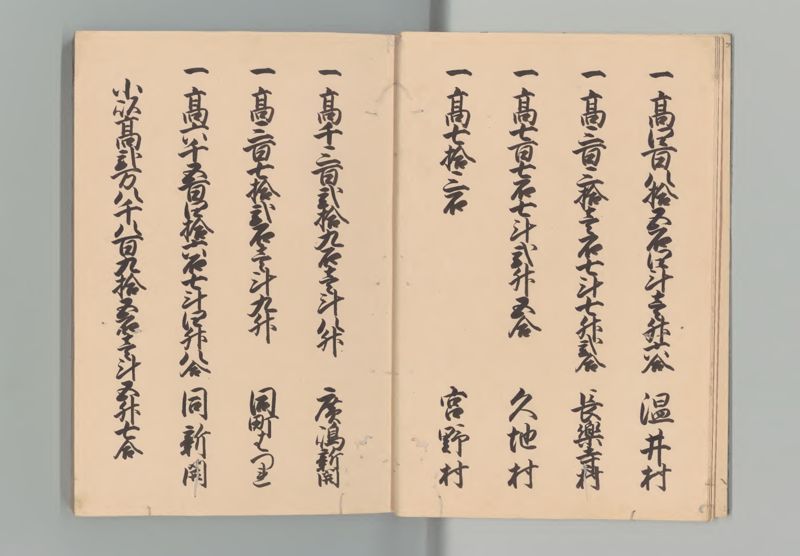 一高四百八拾五石四斗壱升六合 温井村
一高三百三拾壱石七斗七升弐合 長楽寺村
一高七百七石七斗弐升五合 久地村
一高七拾三石 宮野村
一高千三百弐拾九石壱斗八升 廣嶋新開
一高三百七拾弐石壱斗九升 同町はつれ
一高六千五百四拾六石七斗四升八合 同新開
小以高弐万八千八百九拾五石壱斗五升七合